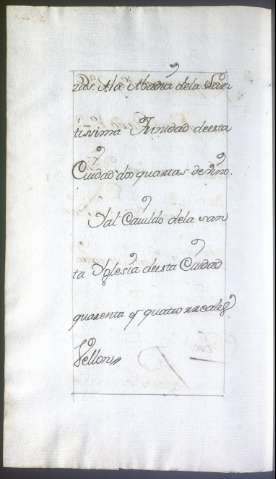 rios. A la Abadia dela San
tissima Trinidad de esta
Ciudad dos quartas de vino.
Y al Cavildo dela san
ta Yglesia de esta Ciudad
quarenta y quatro rreales
Vellon